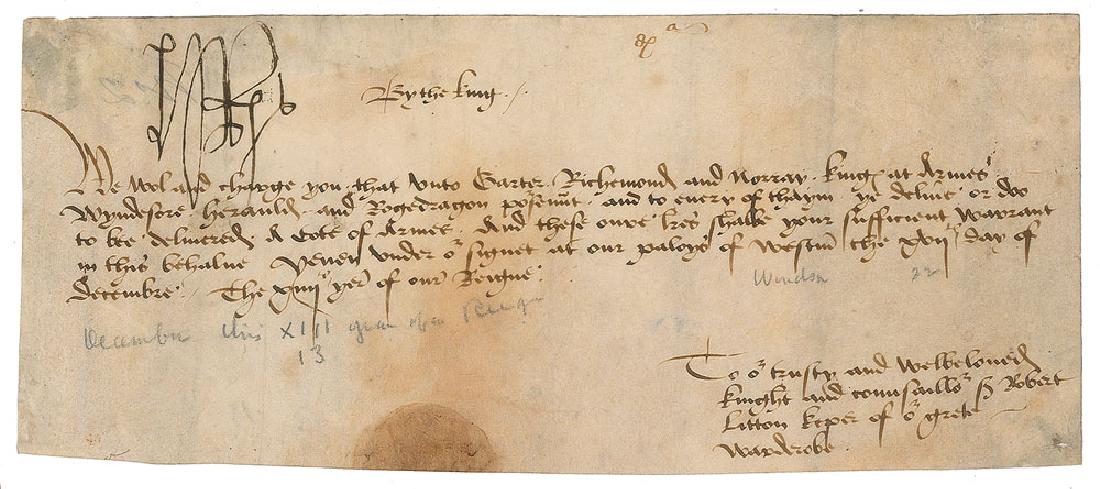 By the king
We wol and charge you that unto Garter Richemond and Norray kings at Armes
Wyndesore herauld and Rogedragon poseunt and to every of thaym ye deliue or doo
to bee deliuered A Cote of Armes And these oure lres shalbe your sufficient Warrant
in this behalue Yeuen under or signet at our paloys of Westm the xvij day of
Decembre The xiiij yer of our Reigne
Windsor 22
December this XIII year of our Reign
13
To or trusty and Welbeloued
knight and counsaillor Sr Robert
Litton keper of or grete
Warderobe